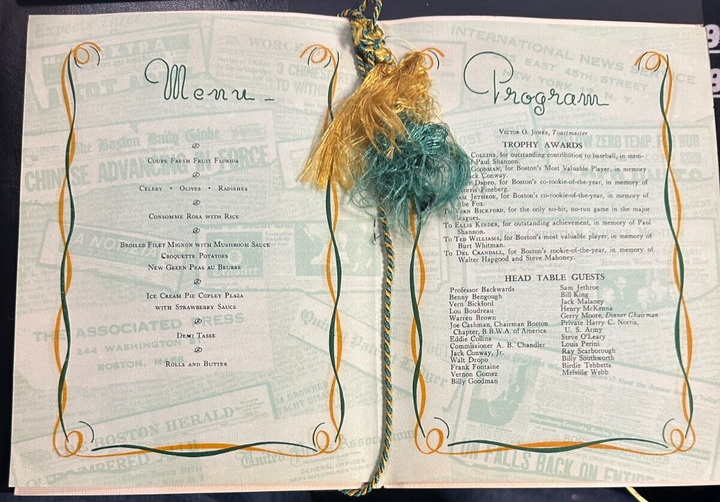 Menu
Coupe Fresh Fruit Florida
Celery • Olives • Radishes
Consomme Rosa with Rice
Broiled Filet Mignon with Mushroom Sauce
Croquette Potatoes
New Green Peas au Beurre
Ice Cream Pie Copley Plaza
with Strawberry Sauce
Demi Tasse
Rolls and Butter
Program
Victor O. Jones, Toastmaster
TROPHY AWARDS
Collins, for outstanding contribution to baseball, in mem-
Paul Shannon.
Goodman, for Boston's Most Valuable Player, in memory
Jack Conway.
Dropo, for Boston's co-rookie-of-the-year, in memory of
Fineberg.
Sam Jethroe, for Boston's co-rookie-of-the-year, in memory of
Abe Fox.
To Vern Bickford, for the only no-hit, no-run game in the major
leagues.
To Ellis Kinder, for outstanding achievement, in memory of Paul
Shannon.
To Ted Williams, for Boston's most valuable player, in memory of
Burt Whitman.
To Del Crandall, for Boston's rookie-of-the-year, in memory of
Walter Hapgood and Steve Mahoney.
HEAD TABLE GUESTS
Professor Backwards
Benny Bengough
Vern Bickford
Lou Boudreau
Warren Brown
Joe Cashman, Chairman Boston
Chapter, B.B.W.A. of America
Eddie Collins
Commissioner A. B. Chandler
Jack Conway, Jr.
Walt Dropo
Frank Fontaine
Vernon Gomez
Billy Goodman
Sam Jethroe
Bill King
Jack Malaney
Henry McKenna
Gerry Moore, Dinner Chairman
Private Harry C. Norris,
U. S. Army
Steve O'Leary
Louis Perini
Ray Scarborough
Billy Southworth
Birdie Tebbetts
Melville Webb
EXTRA
The Boston Daily Globe
CHINESE ADVANCING FORCE
THE ASSOCIATED PRESS
344 WASHINGTON
BOSTON, MASS
BOSTON HERALD
INTERNATIONAL NEWS SERVICE
EAST 45TH STREET
NEW YORK N. Y.
ZERO TEMP.
GENERAL OFFICES
FALLS BACK ON ENTIRE